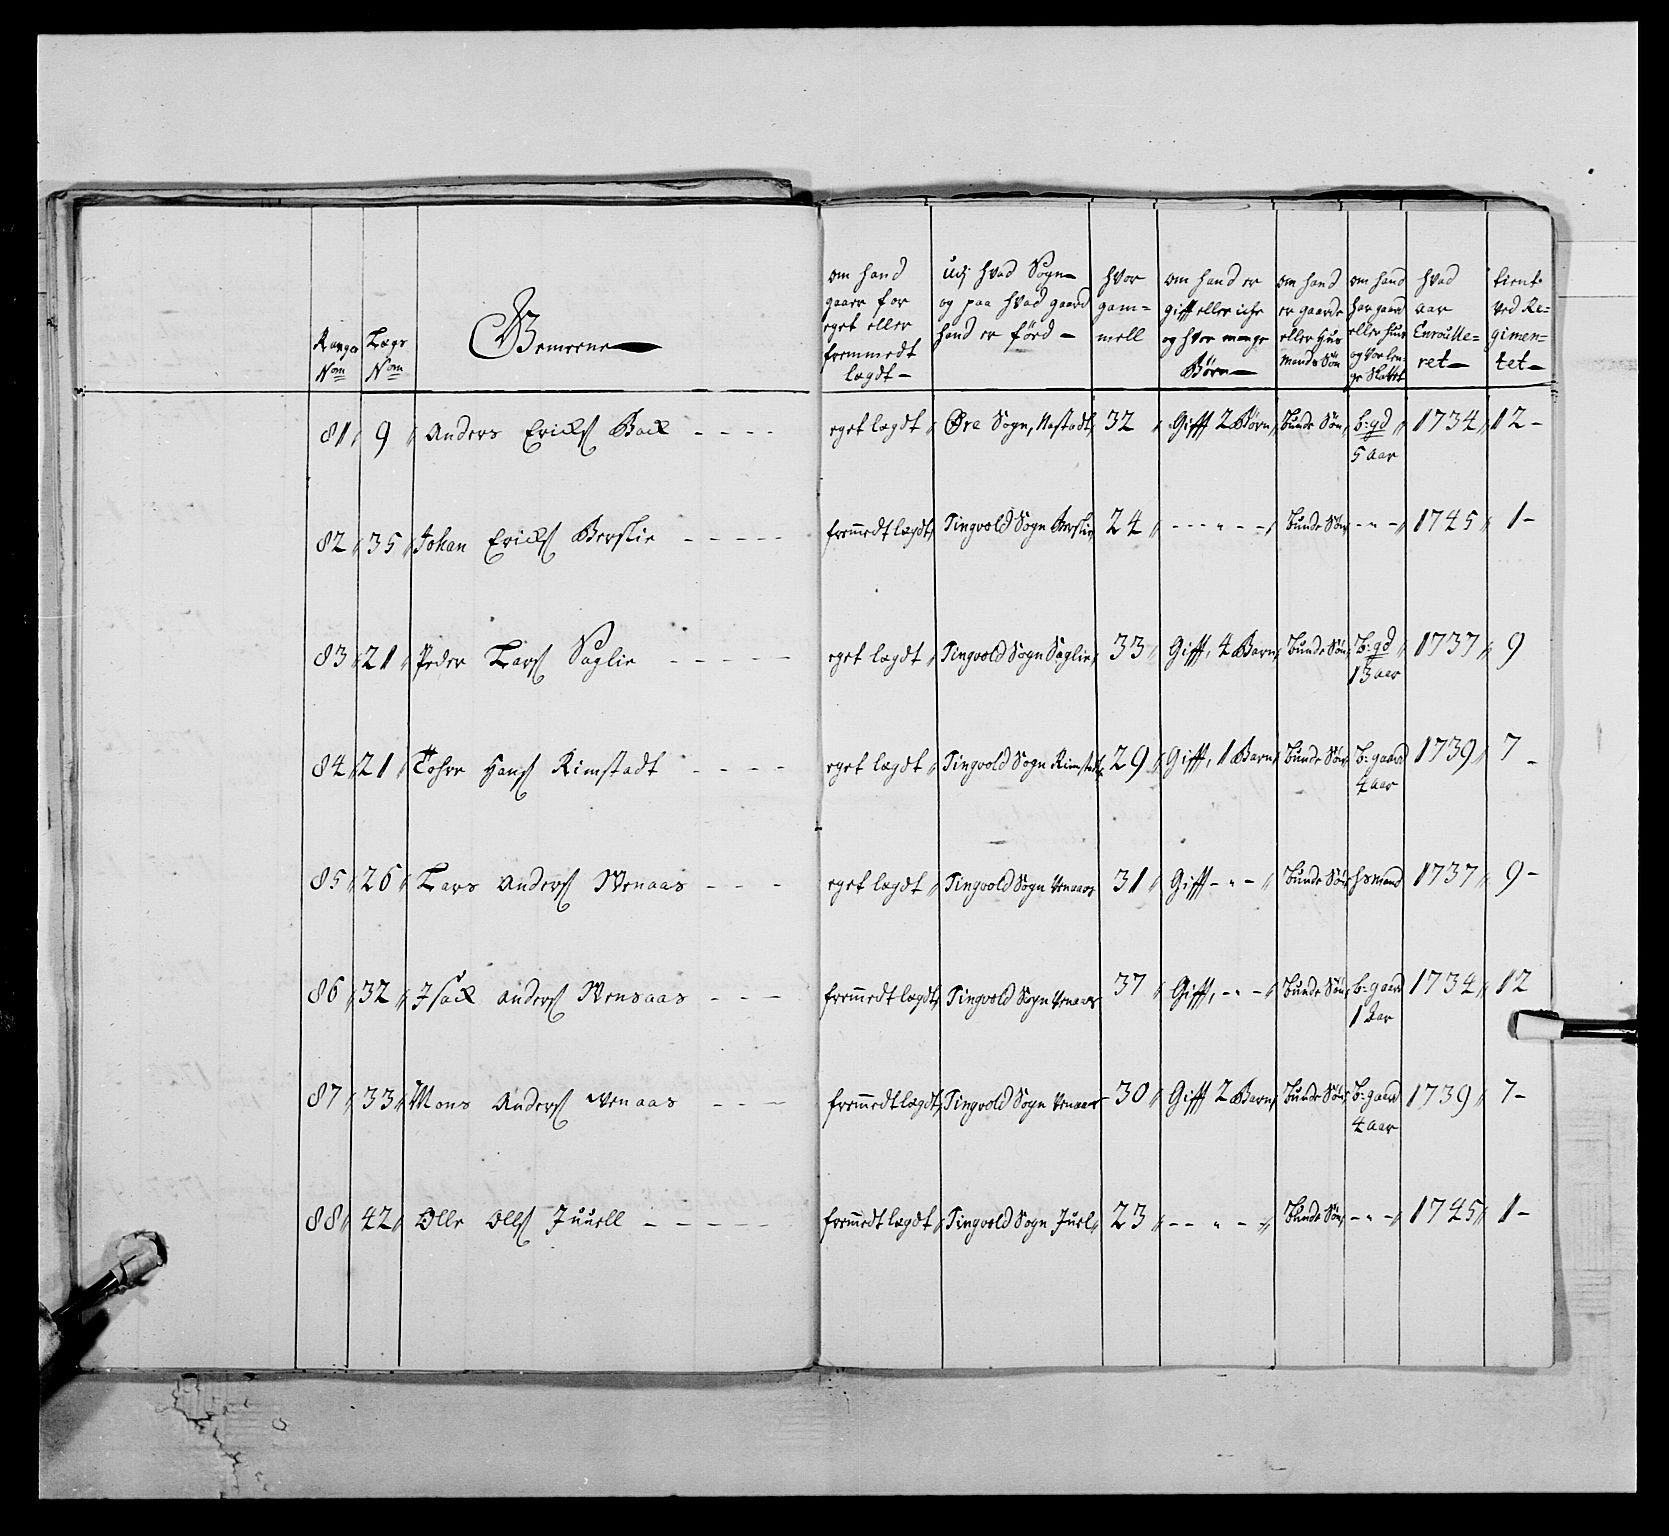 Range Nom
Lægs Nom
Gemeene
om hand gaaer for eget eller fremmedt lægdt
udj hvad Sogn og paa hvad gaard hand er förd
hvor gammell
om hand er gift eller iche og hvor mange Börn
om hand er gaarde eller Huusmands Sön
om hand har gaard eller Huus og vor lenge
hvad aar Enroulleret
tient ved Regimentet
81 9 Anders Ericks Bach eget lægdt Øre Sogn, Nastadt 32 Gifft 2 Börn Bunde Sön b: gd 1734 12
5 aar
82 35 Johan Ericks Berslie fremmedt lægdt Tingvold Sogn Berslie 24 Bunde Sön 1745 1
83 21 Peder Lars Saglie eget lægdt Tingvold Sogn Saglie 33 Gifft, 4 Barn Bunde Sön b: gd 1737 9
13 aar
84 21 Tohre Hans Rimstadt eget lægdt Tingvold Sogn Rimstadt 29 Gifft, 1 Barn Bunde Sön b: gaard 1739 7
4 aar
85 26 Lars Anders Wenaas eget lægdt Tingvold Sogn Wenaas 31 Gifft Bunde Sön hsmand 1737 9
86 32 Isack Anders Wensaas fremmedt lægdt Tingvold Sogn Wenaas 37 Gifft, Bunde Sön b: gaard 1734 12
1 aar
87 33 Mons Anders Wenaas fremmedt lægdt Tingvold Sogn Wenaas 30 Gifft 2 Barn Bunde Sön b: gaard 1739 7
4 aar
88 42 Olle Olls Juuell fremmedt lægdt Tingvold Sogn Juel 23 Bunde Sön 1745 1